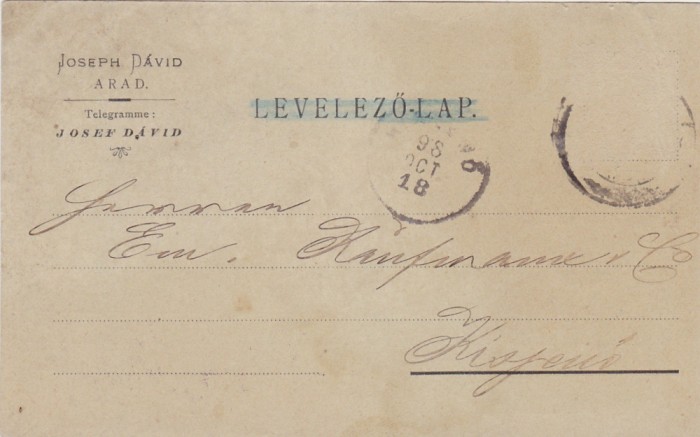 JOSEPH DÁVID
ARAD.
Telegramme:
JOSEF DÁVID
LEVELEZŐ-LAP.
98
OCT
18
Herren
Em. Kaufmann & Co
Kisjenő